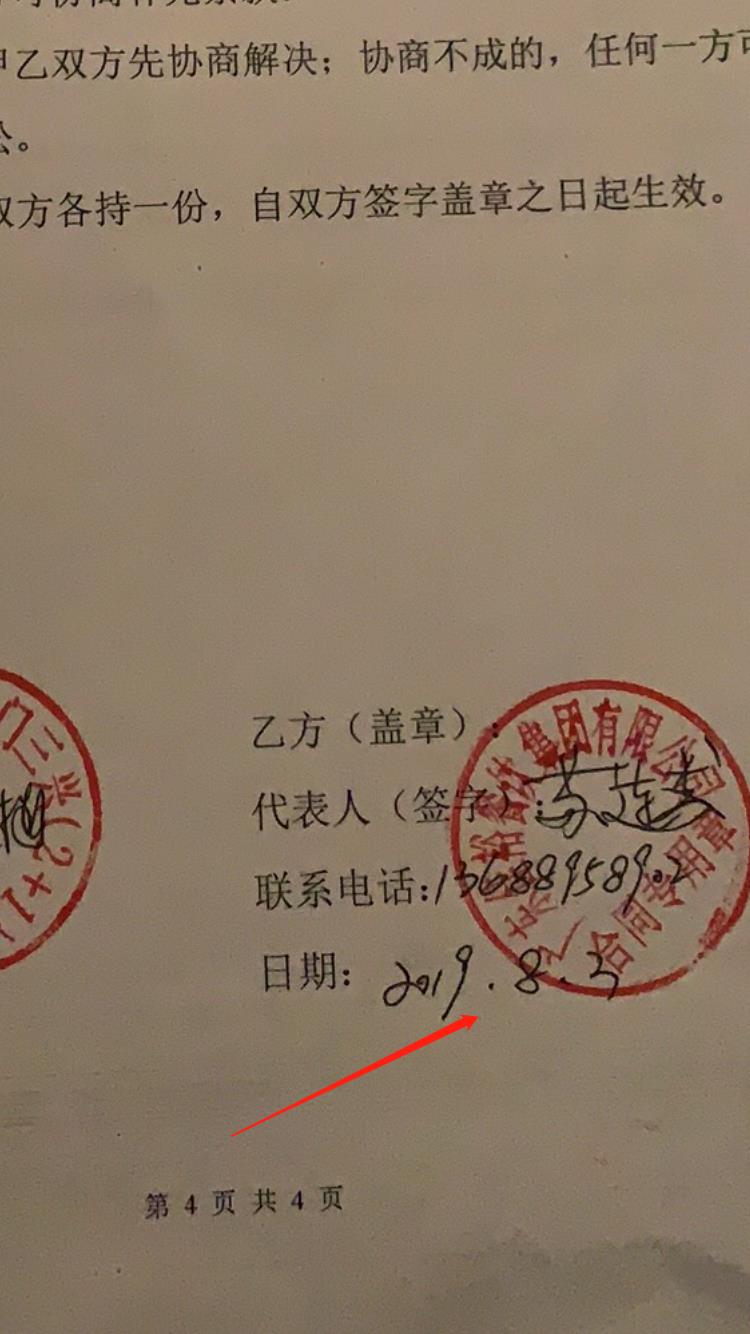 甲乙双方先协商解决；协商不成的，任何一方可
讼。
双方各持一份，自双方签字盖章之日起生效。
乙方（盖章）：
代表人（签字）：
联系电话：13688958902
日期：2019.8.3
集团有限公司
合同专用章
三类(2+1)
第 4 页 共 4 页